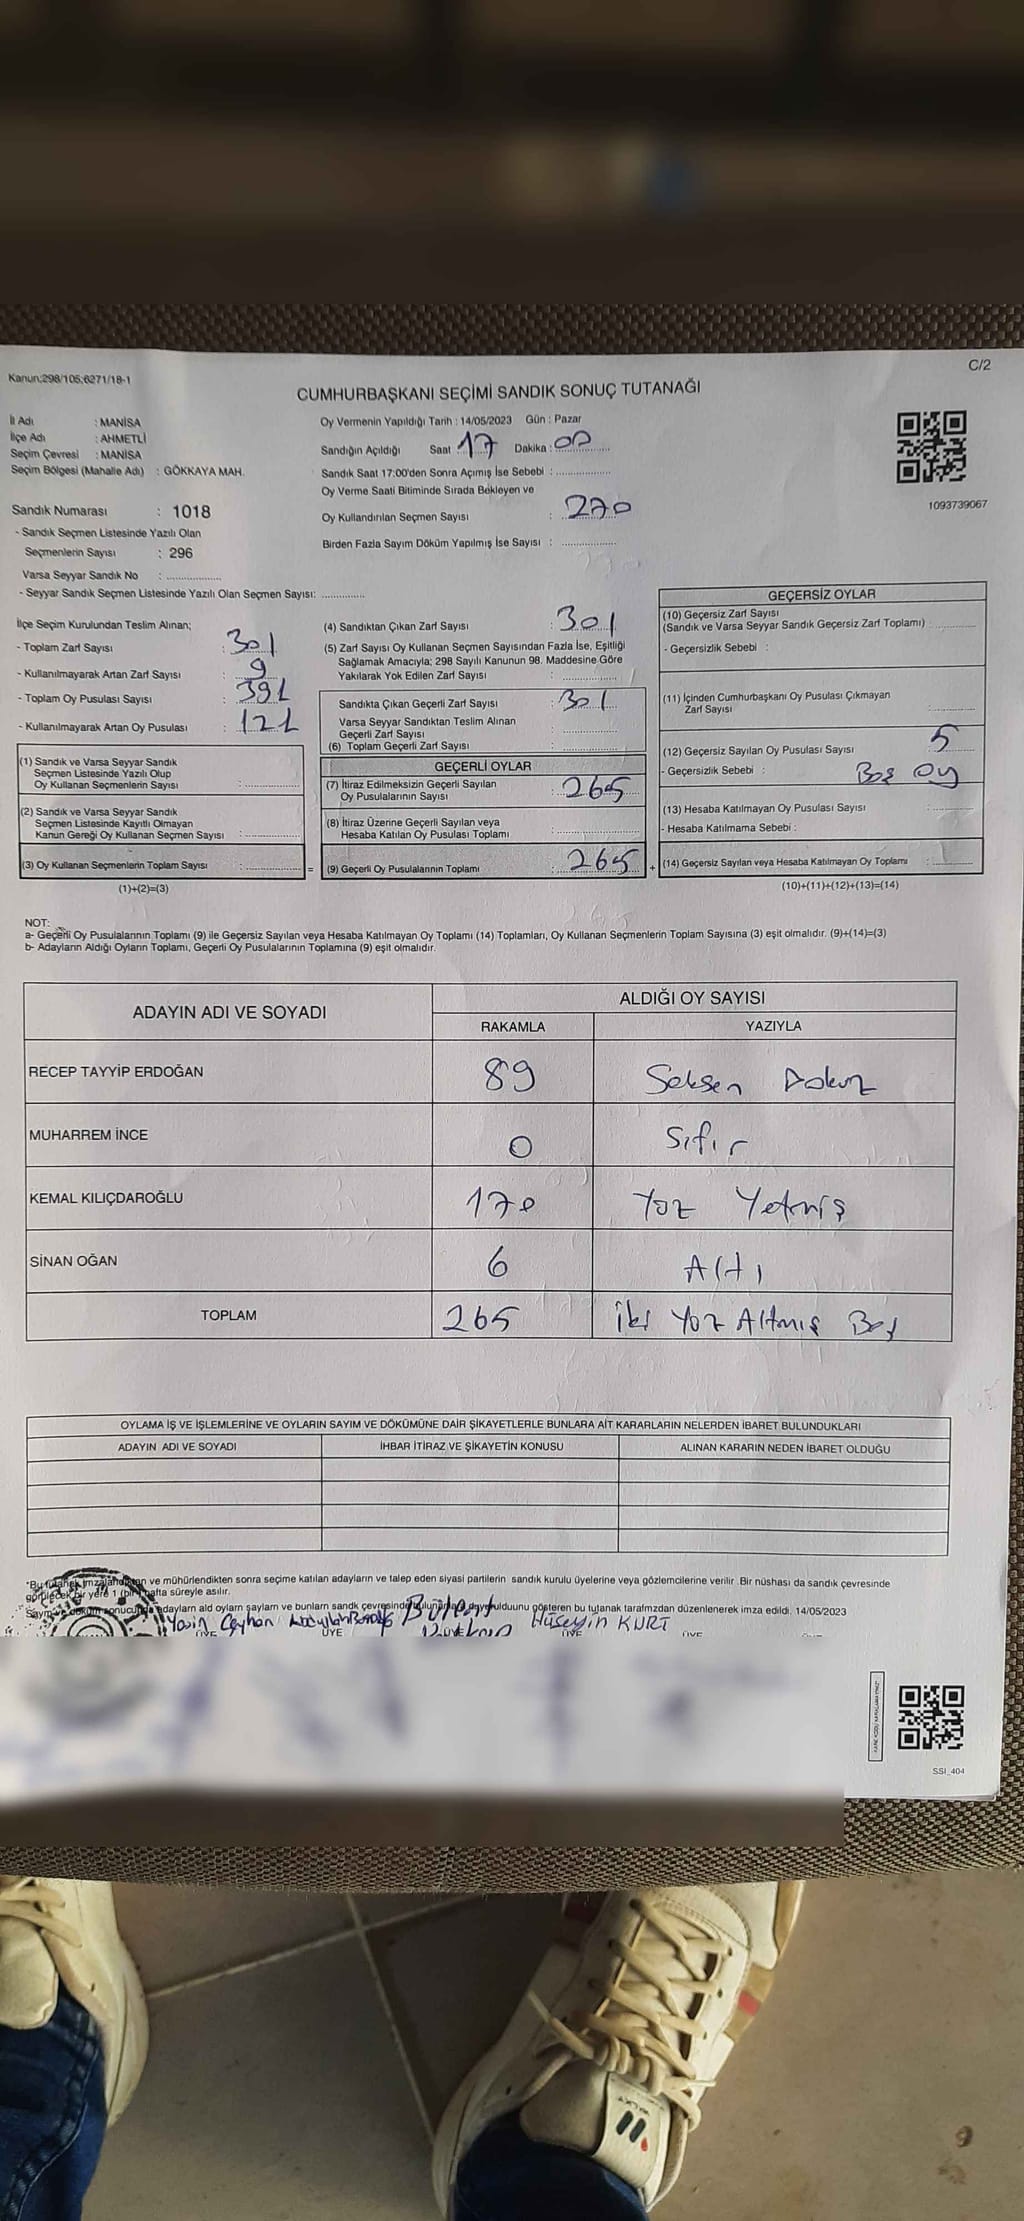 C/2
Kanun:298/105;6271/18-1
CUMHURBAŞKANI SEÇİMİ SANDIK SONUÇ TUTANAĞI
İl Adı : MANİSA
İlçe Adı : AHMETLİ
Seçim Çevresi : MANİSA
Seçim Bölgesi (Mahalle Adı) : GÖKKAYA MAH.
Oy Vermenin Yapıldığı Tarih : 14/05/2023 Gün : Pazar
Sandığın Açıldığı Saat 17 Dakika : 00
Sandık Saat 17:00'den Sonra Açımış İse Sebebi :
Oy Verme Saati Bitiminde Sırada Bekleyen ve
Oy Kullandırılan Seçmen Sayısı : 270
Birden Fazla Sayım Döküm Yapılmış İse Sayısı :
1093739067
Sandık Numarası : 1018
- Sandık Seçmen Listesinde Yazılı Olan
Seçmenlerin Sayısı : 296
Varsa Seyyar Sandık No :
- Seyyar Sandık Seçmen Listesinde Yazılı Olan Seçmen Sayısı:
İlçe Seçim Kurulundan Teslim Alınan;
- Toplam Zarf Sayısı : 301
- Kullanılmayarak Artan Zarf Sayısı : 9
- Toplam Oy Pusulası Sayısı : 391
- Kullanılmayarak Artan Oy Pusulası : 121
(1) Sandık ve Varsa Seyyar Sandık
Seçmen Listesinde Yazılı Olup
Oy Kullanan Seçmenlerin Sayısı :
(2) Sandık ve Varsa Seyyar Sandık
Seçmen Listesinde Kayıtlı Olmayan
Kanun Gereği Oy Kullanan Seçmen Sayısı :
(3) Oy Kullanan Seçmenlerin Toplam Sayısı : =
(1)+(2)=(3)
(4) Sandıktan Çıkan Zarf Sayısı : 301
(5) Zarf Sayısı Oy Kullanan Seçmen Sayısından Fazla İse, Eşitliği
Sağlamak Amacıyla; 298 Sayılı Kanunun 98. Maddesine Göre
Yakılarak Yok Edilen Zarf Sayısı :
Sandıkta Çıkan Geçerli Zarf Sayısı : 301
Varsa Seyyar Sandıktan Teslim Alınan
Geçerli Zarf Sayısı :
(6) Toplam Geçerli Zarf Sayısı :
GEÇERLİ OYLAR
(7) İtiraz Edilmeksizin Geçerli Sayılan
Oy Pusulalarının Sayısı : 265
(8) İtiraz Üzerine Geçerli Sayılan veya
Hesaba Katılan Oy Pusulası Toplamı :
(9) Geçerli Oy Pusulalarının Toplamı : 265 +
GEÇERSİZ OYLAR
(10) Geçersiz Zarf Sayısı
(Sandık ve Varsa Seyyar Sandık Geçersiz Zarf Toplamı) :
- Geçersizlik Sebebi :
(11) İçinden Cumhurbaşkanı Oy Pusulası Çıkmayan
Zarf Sayısı :
(12) Geçersiz Sayılan Oy Pusulası Sayısı : 5
- Geçersizlik Sebebi : Boş Oy
(13) Hesaba Katılmayan Oy Pusulası Sayısı :
- Hesaba Katılmama Sebebi :
(14) Geçersiz Sayılan veya Hesaba Katılmayan Oy Toplamı :
(10)+(11)+(12)+(13)=(14)
NOT:
a- Geçerli Oy Pusulalarının Toplamı (9) ile Geçersiz Sayılan veya Hesaba Katılmayan Oy Toplamı (14) Toplamları, Oy Kullanan Seçmenlerin Toplam Sayısına (3) eşit olmalıdır. (9)+(14)=(3)
b- Adayların Aldığı Oyların Toplamı, Geçerli Oy Pusulalarının Toplamına (9) eşit olmalıdır.
ADAYIN ADI VE SOYADI ALDIĞI OY SAYISI
RAKAMLA YAZIYLA
RECEP TAYYİP ERDOĞAN 89 Seksen Dokuz
MUHARREM İNCE 0 Sıfır
KEMAL KILIÇDAROĞLU 170 Yüz Yetmiş
SİNAN OĞAN 6 Altı
TOPLAM 265 İki Yüz Altmış Beş
OYLAMA İŞ VE İŞLEMLERİNE VE OYLARIN SAYIM VE DÖKÜMÜNE DAİR ŞİKAYETLERLE BUNLARA AİT KARARLARIN NELERDEN İBARET BULUNDUKLARI
ADAYIN ADI VE SOYADI İHBAR İTİRAZ VE ŞİKAYETİN KONUSU ALINAN KARARIN NEDEN İBARET OLDUĞU
*Bu tutanak imzalandıktan ve mühürlendikten sonra seçime katılan adayların ve talep eden siyasi partilerin sandık kurulu üyelerine veya gözlemcilerine verilir. Bir nüshası da sandık çevresinde
görülecek bir yere 1 (bir) hafta süreyle asılır.
Sayım ve döküm sonucunda adayların ald oyların sayların ve bunların sandk çevresinde gösteren bu tutanak tarafmzdan düzenlenerek imza edildi. 14/05/2023
Yasin Ceyhan Bülent Hüseyin KURT
ÜYE ÜYE ÜYE
SSI_404